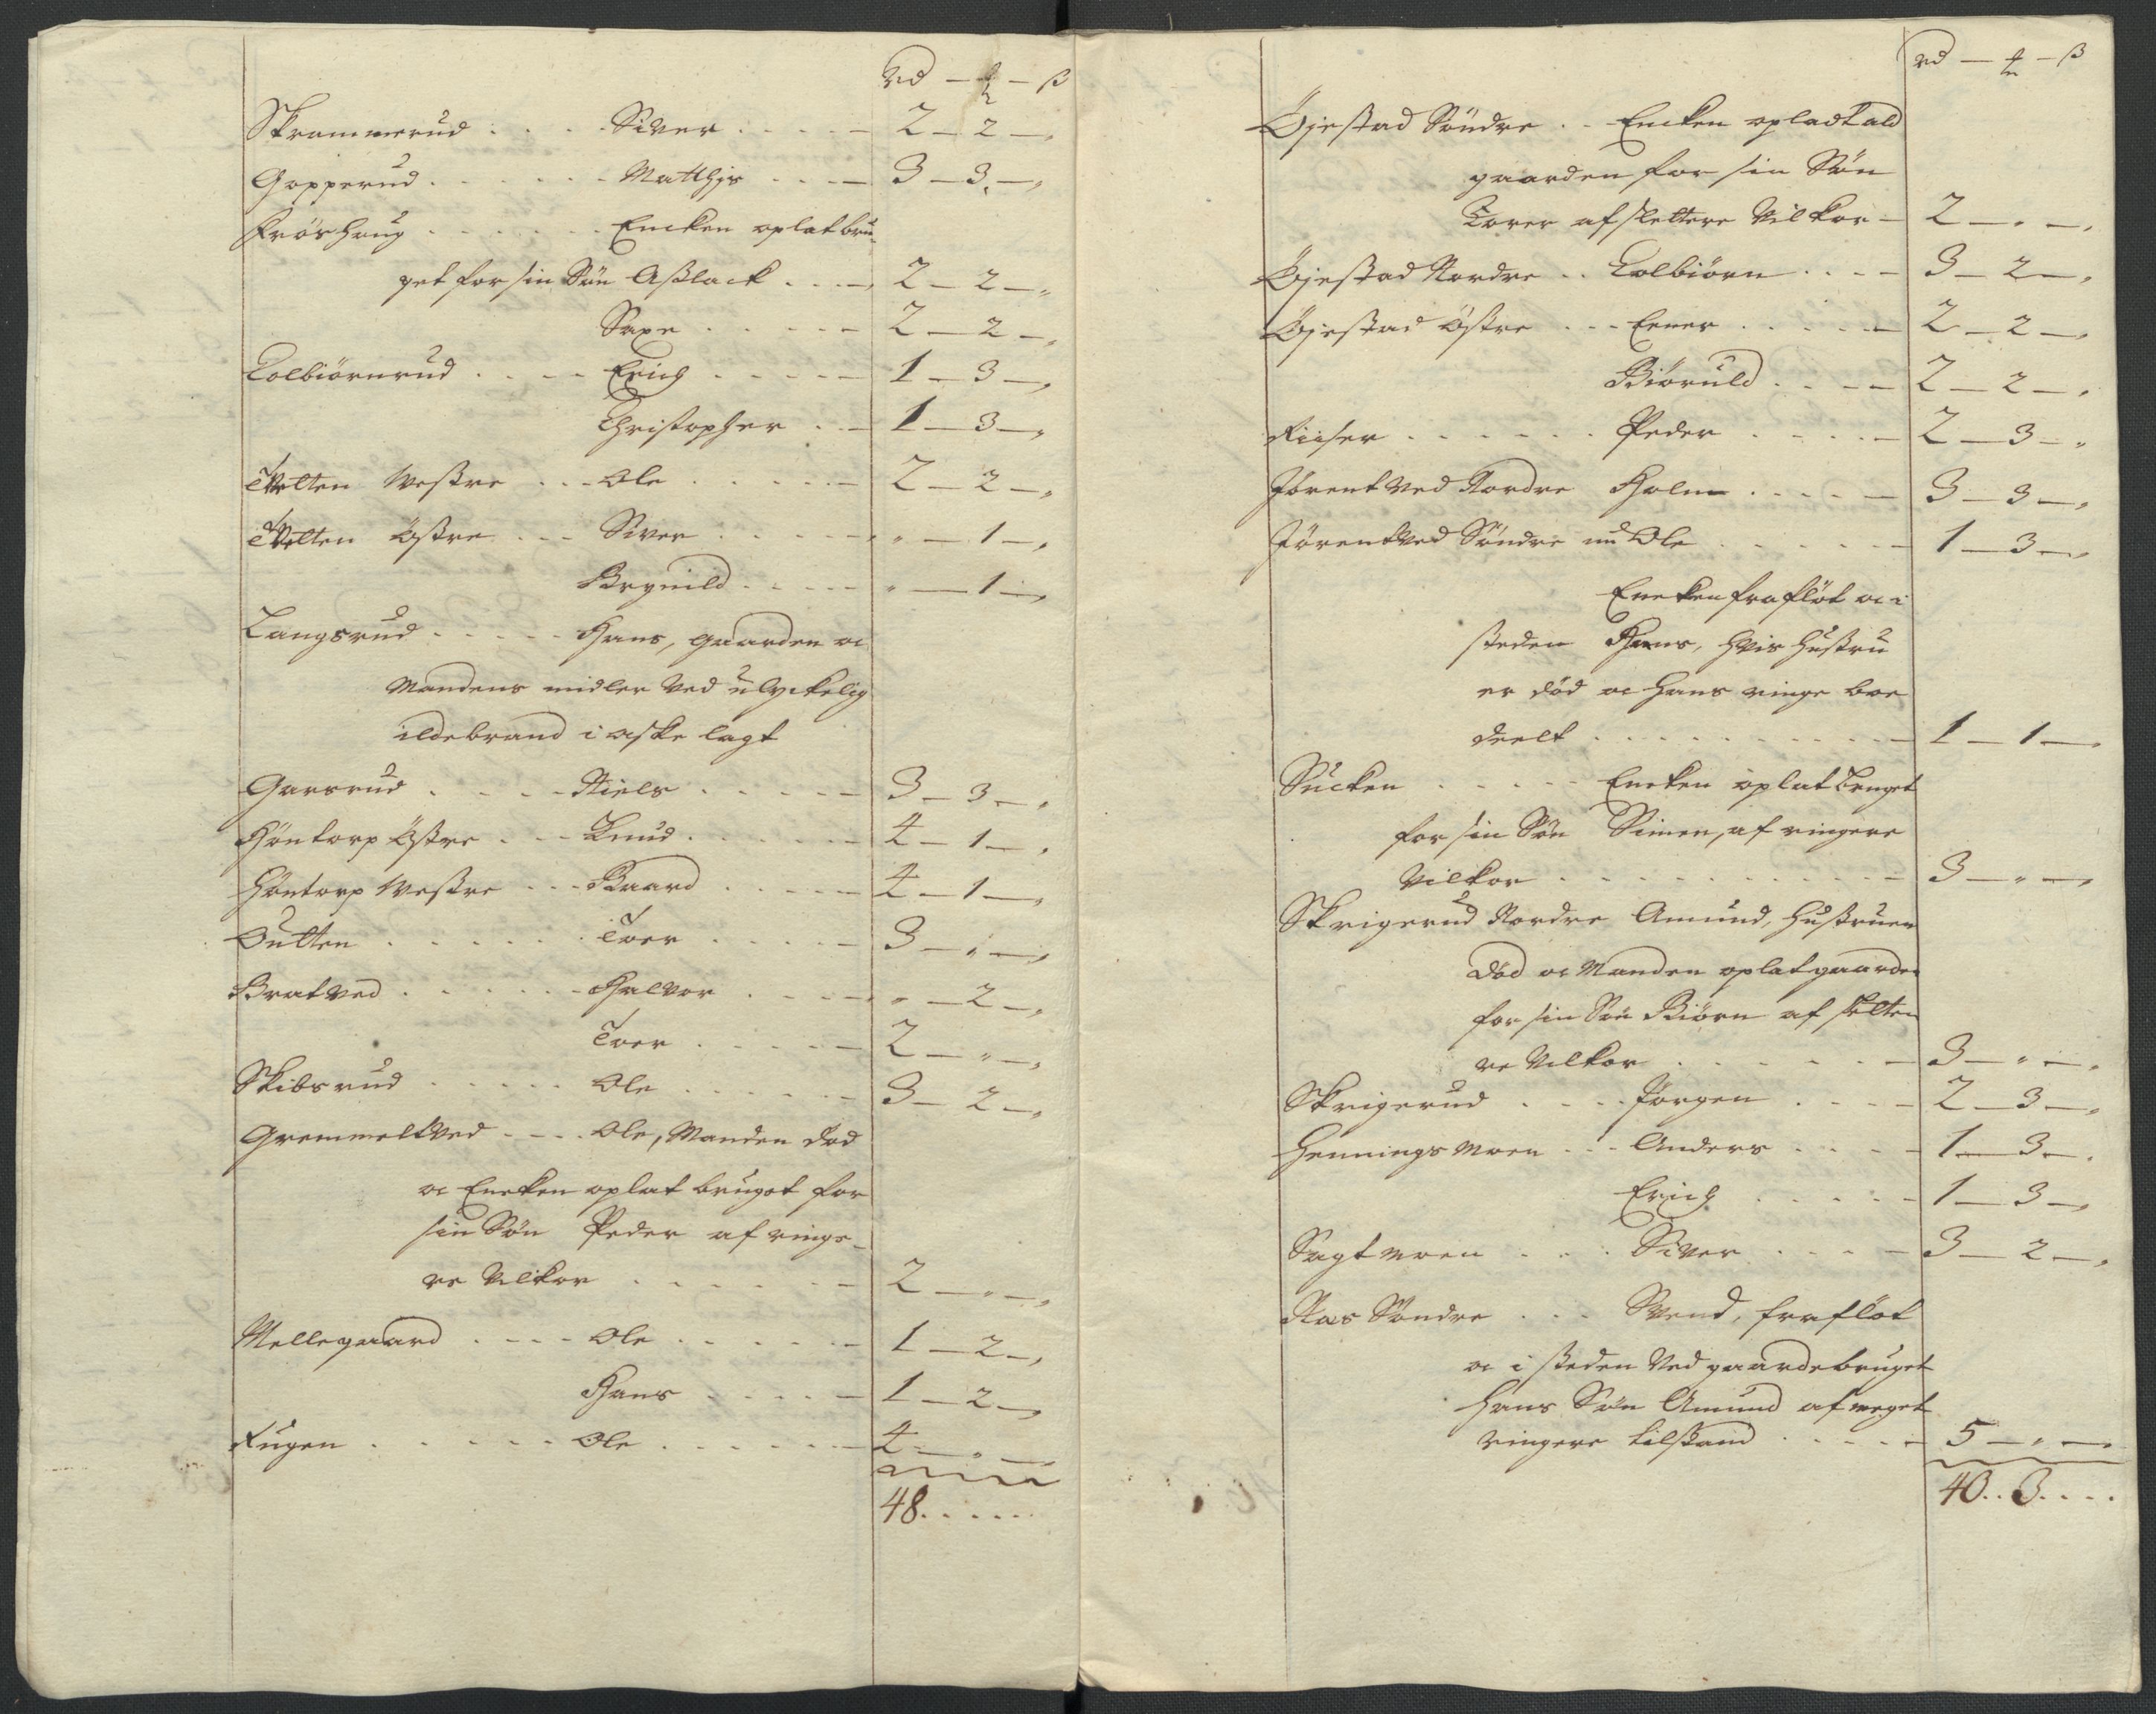 rd — ₰ — ß
Skrammerud . . . . Siver . . . . . — 2 — 2 — „
Gopperud . . . . . . Matthjs . . . — 3 — 3 — „
Fröshoug . . . . . . Encken oplat bru-
get for sin Sön Aßlack . . . — 2 — 2 — „
Saxe . . . . . — 2 — 2 — „
Tolbiörnrud . . . . Erich . . . . . — 1 — 3 — „
Christopher . . — 1 — 3 — „
Tvetten Westre . . . Ole . . . . . . — 2 — 2 — „
Tvetten Östre . . . Siver . . . . . — „ — 1 — „
Brynild . . . . — „ — 1 — „
Langsrud . . . . . Hans, gaarden oc
Mandens midler Ved ulyckelig
ildebrand i aske lagt
Garsrud . . . . Niels . . . . . — 3 — 3 — „
Höntorp Östre . . . Knud . . . . . — 4 — 1 — „
Höntorp Westre . . . Baard . . . . — 4 — 1 — „
Dutten . . . . . . Tver . . . . . — 3 — „ — „
Bratved . . . . . . Halvor . . . . — „ — 2 — „
Tver . . . . . — 2 — „ — „
Skibsrud . . . . . Ole . . . . . . — 3 — 2 — „
Gremmeltved . . . . Ole, Manden död
oc Encken oplat bruget for
sin Sön Peder af ringe-
re Vilkor . . . . . . — 2 — „ — „
Mellegaard . . . . Ole . . . . . . — 1 — 2 — „
Hans . . . . . — 1 — 2 — „
Fugen . . . . . . Ole . . . . . . — 4 — „ —
48. . . . . .
rd — ₰ — ß
Öjestad Söndre . . Encken opladt ald
gaarden for sin Sön
Torer af slettere Vilkor — 2 — „ — „
Öjestad Nordre . . Tolbiörn . . . — 3 — 2 — „
Öjestad Östre . . . Ener . . . . . — 2 — 2 — „
Biöruld . . . . — 2 — 2 — „
Riiser . . . . . . Peder . . . . . — 2 — 3 — „
Jörentved Nordre Holm . . . . . — 3 — 3 — „
Jörentved Söndre nu Ole . . . . . . — 1 — 3 — „
Encken fraflöt oc i
steden Hans, hvis hustru
er död oc hans ringe boe
deelt . . . . . . . . . . — 1 — 1 — „
Sucken . . . . . Encken oplat bruget
for sin Sön Simen, af ringere
Vilkor . . . . . . . . . . — 3 — „ — „
Skrigerud Nordre Amund, hustruen
död oc Manden oplat gaarden
for sin Sön Biörn af slette-
re Vilkor . . . . . . — 3 — „ — „
Skrigerud . . . . Jörgen . . . . — 2 — 3 — „
Hennings moen . . . Anders . . . . — 1 — 3 — „
Erich . . . . . — 1 — 3 — „
Sagt moen . . . . Siver . . . . — 3 — 2 — „
Aas Söndre . . . Svend, fraflöt
oc i steden Ved gaardebruget
hans Sön Amund af meget
ringere tilstand . . . . — 5 — „ — „
40. . 3. . . .